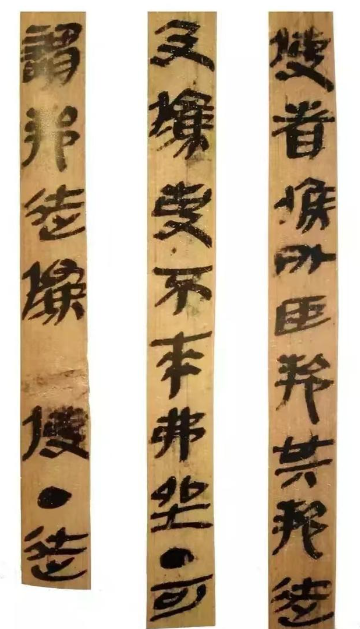 使者侯外臣邦其邦徒
及偽吏不來弗坐●可
謂邦徒偽使●徒